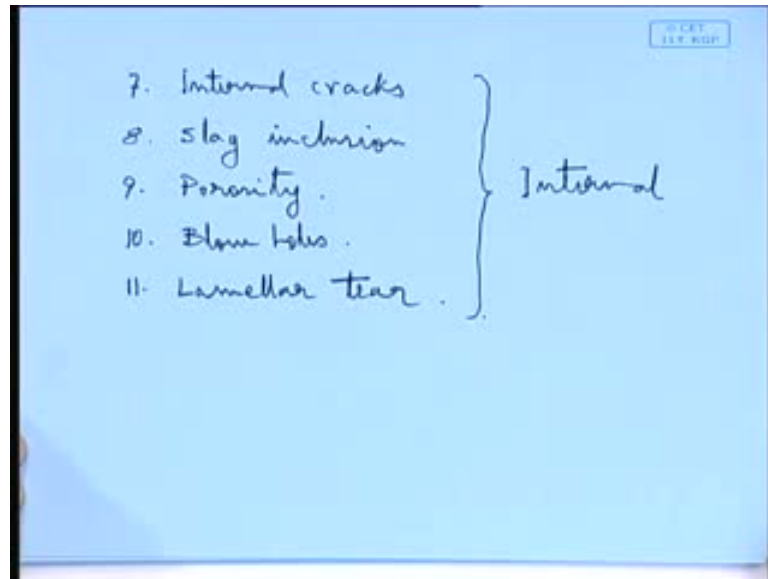 © CET
I.I.T. KGP
7. Internal cracks
8. Slag inclusion
9. Porosity.
10. Blow holes.
11. Lamellar tear.
Internal